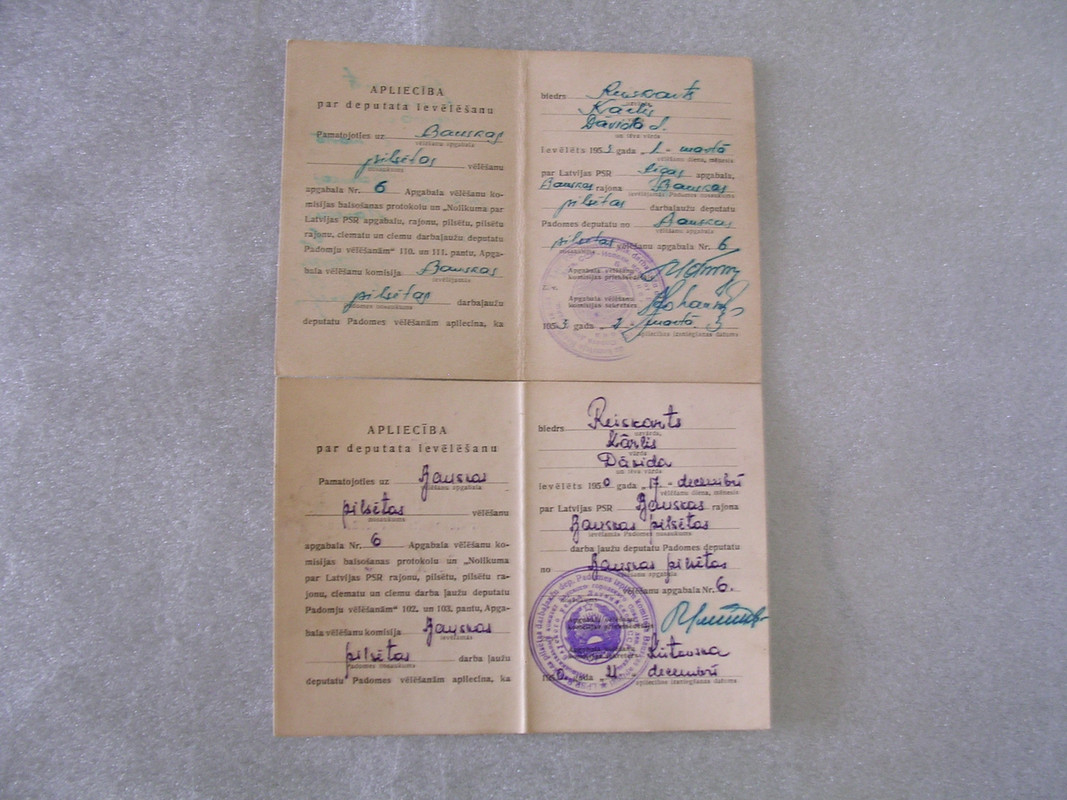 APLIECĪBA
par deputata ievēlēšanu
Pamatojoties uz Bauskas
vēlēšanu apgabala
pilsētas vēlēšanu
nosaukums
apgabala Nr. 6 Apgabala vēlēšanu ko-
misijas balsošanas protokolu un „Nolikuma par
Latvijas PSR apgabalu, rajonu, pilsētu, pilsētu
rajonu, ciematu un ciemu darbaļaužu deputatu
Padomju vēlēšanām“ 110. un 111. pantu, Apga-
bala vēlēšanu komisija Bauskas
ievēlējamās
pilsētas darbaļaužu
Padomes nosaukums
deputatu Padomes vēlēšanām apliecina, ka
biedrs Reiskarts
uzvārds,
Kārlis
vārds
Dāvida d.
un tēva vārds
ievēlēts 1953 gada 1. martā
vēlēšanu diena, mēnesis
par Latvijas PSR Rīgas apgabala,
Bauskas rajona Bauskas
ievēlētās Padomes nosaukums
pilsētas darbaļaužu deputatu
Padomes deputatu no Bauskas
vēlēšanu apgabala
pilsētas vēlēšanu apgabala Nr. 6
nosaukums
Apgabala vēlēšanu
komisijas priekšsēdētājs
Apgabala vēlēšanu
komisijas sekretārs
1953. gada „ martā
apliecības izsniegšanas datums
APLIECĪBA
par deputata ievēlēšanu
Pamatojoties uz Bauskas
vēlēšanu apgabala
pilsētas vēlēšanu
nosaukums
apgabala Nr. 6 Apgabala vēlēšanu ko-
misijas balsošanas protokolu un „Nolikuma
par Latvijas PSR rajonu, pilsētu, pilsētu ra-
jonu, ciematu un ciemu darba ļaužu deputatu
Padomju vēlēšanām“ 102. un 103. pantu, Apga-
bala vēlēšanu komisija Bauskas
ievēlamās
pilsētas darba ļaužu
Padomes nosaukums
deputatu Padomes vēlēšanām apliecina, ka
biedrs Reiskarts
uzvārds,
Kārlis
vārds
Dāvida
un tēva vārds
ievēlēts 1950 gada „17. decembrī
vēlēšanu diena, mēnesis
par Latvijas PSR Bauskas rajona
Bauskas pilsētas
ievēlētās Padomes nosaukums
darba ļaužu deputatu Padomes deputatu
no Bauskas pilsētas
vēlēšanu apgabala
vēlēšanu apgabala Nr. 6.
1950. gada „21. decembrī
apliecības izsniegšanas datums